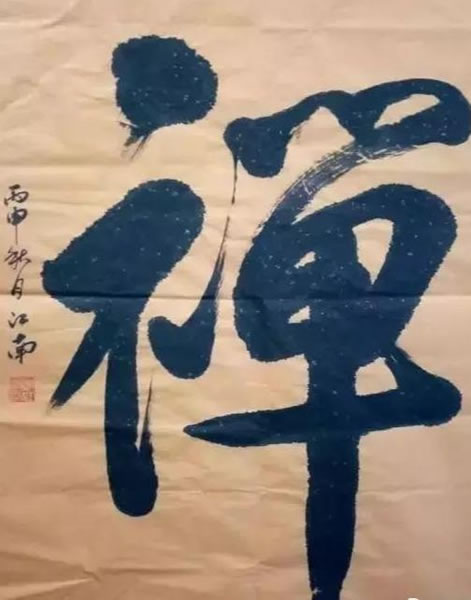 禪
丙申秋月江南